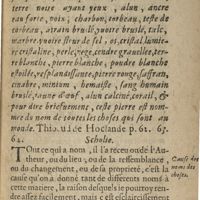 terre noire ayant yeux, alun, ancre
eau forte, voix, charbon, corbeau, teste de
corbeau, airain bruslé, yvoire bruslé, talc,
marbre, yvoire, fleur de sel, os, cristal, lumie-
re cristaline, perle, rege, cendre gravellée, ter-
re blanche, pierre blanche, poudre blanche
estoilée, resplandissante, pierre rouge, saffran,
cinabre, minium, hematite, sang humain
bruslé, jaune d'œuf, alun calciné, corail, &
pour dire briefvement, ceste pierre est nom-
mé du nom de toutes les choses qui sont au
monde. Th. vi. de Hoclande p. 61. 65.
62.
Scholie.
TOut ce qui a nom, il l'a receu ou de l'Au-
theur, ou du lieu, ou de la ressemblance,
ou du changement, ou de sa proprieté, & est la
cause qu'on a donné tant de differents noms à
cette matiere, la raison desquels se pourroy ren-
dre assez facilement, mais c'est esclaircissement
Cause des
noms des
choses.